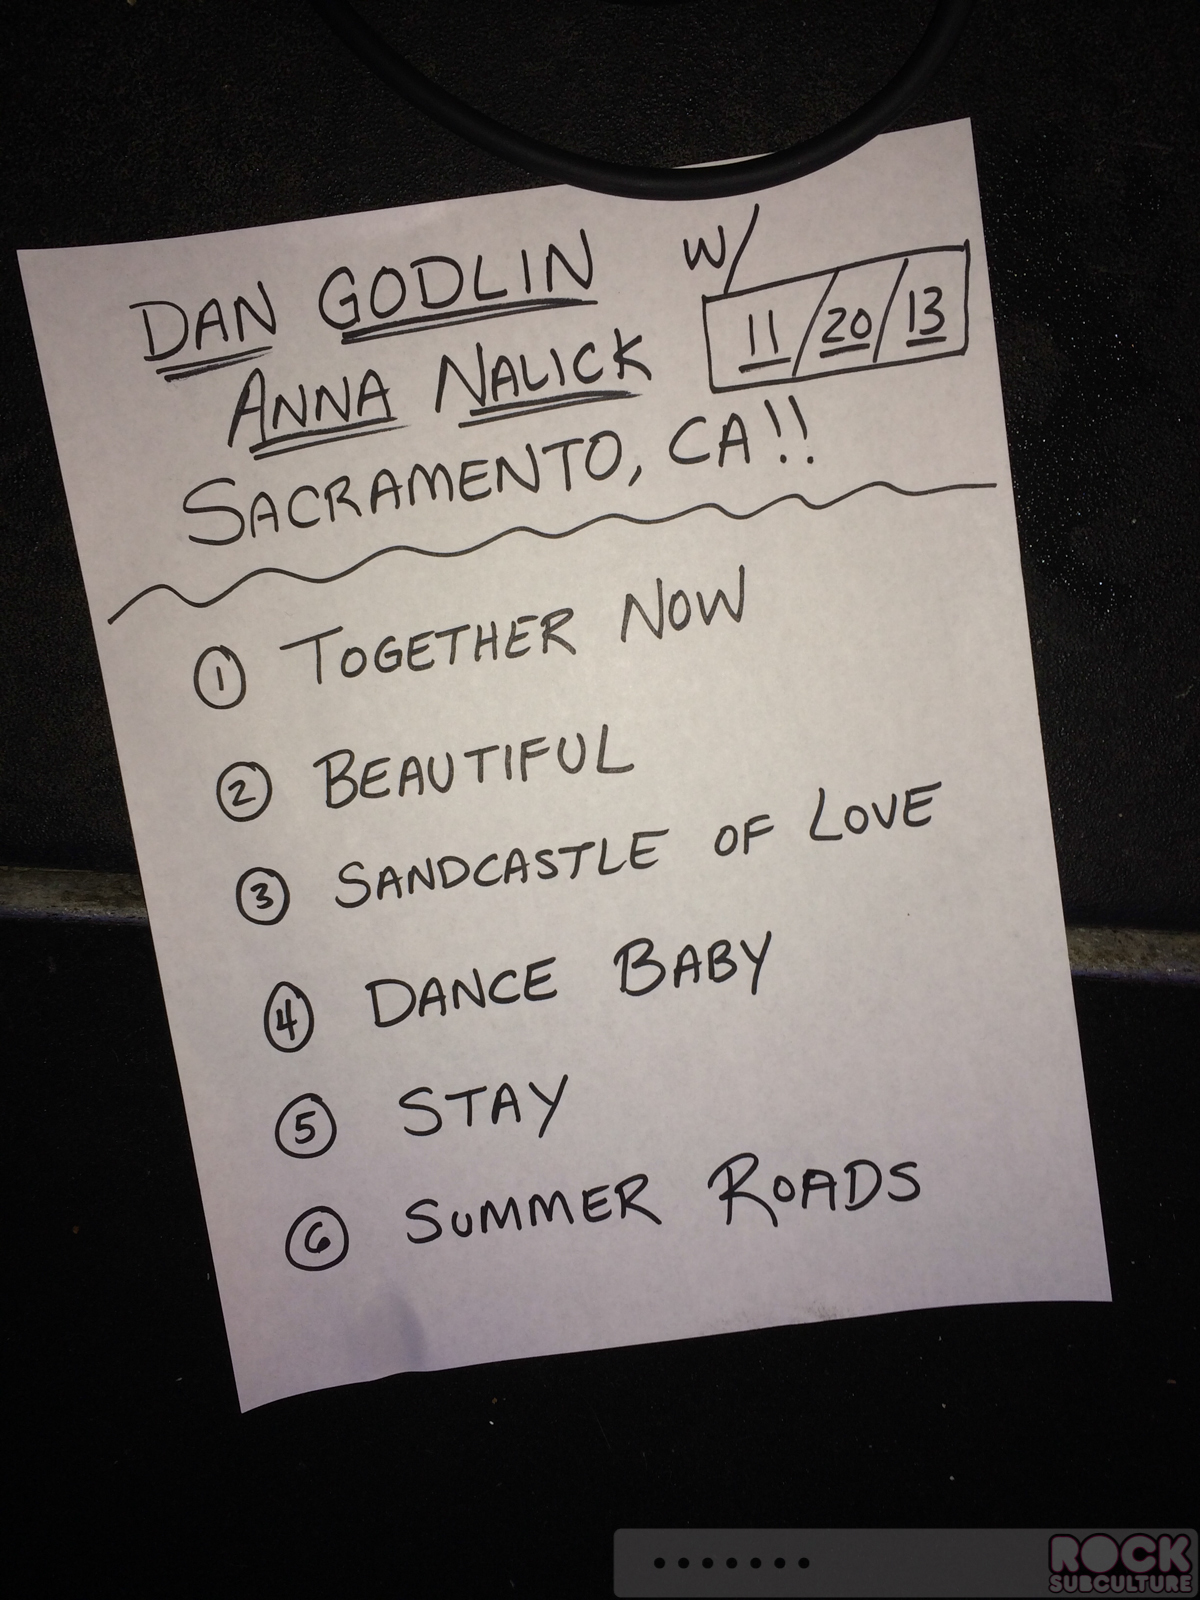 DAN GODLIN W/
11/20/13
ANNA NALICK
SACRAMENTO, CA!!
1 TOGETHER NOW
2 BEAUTIFUL
3 SANDCASTLE OF LOVE
4 DANCE BABY
5 STAY
6 SUMMER ROADS
ROCK
SUBCULTURE